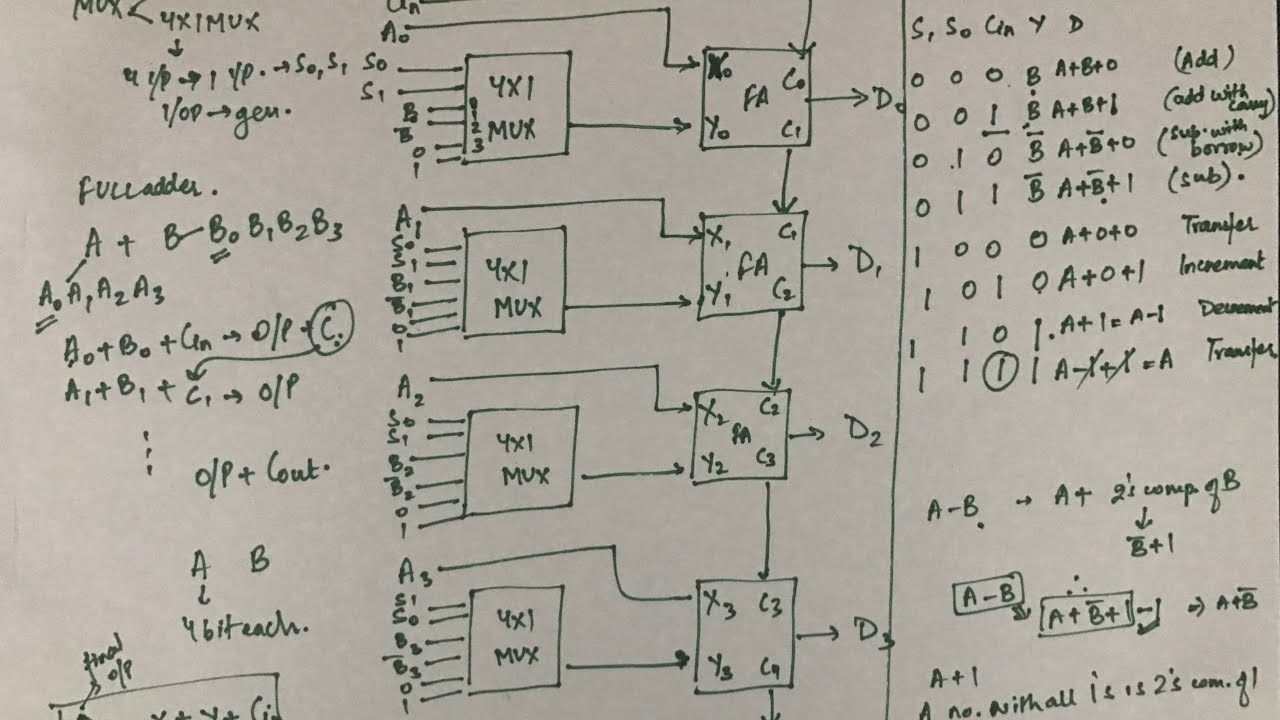 MUX
4X1MUX
4 I/P → 1 Y/P. → S0, S1
1/OP → gen.
FULL adder.
A + B — B0 B1 B2 B3
A0 A1 A2 A3
A0 + B0 + Cin → O/P + C1
A1 + B1 + C1 → O/P
O/P + Cout.
A B
4 bit each.
final
O/P
X + Y + Cin
Cin
A0
S0
S1
B0
B̅
0
1
4X1
MUX
0
1
2
3
X0
C0
FA
Y0
C1
D0
A1
S0
S1
B1
B̅1
0
1
4X1
MUX
X1
C1
FA
Y1
C2
D1
A2
S0
S1
B2
B̅2
0
1
4X1
MUX
X2
C2
FA
Y2
C3
D2
A3
S1
S0
B3
B̅3
0
1
4X1
MUX
X3
C3
Y3
C4
D3
S1 S0 Cin Y D
0 0 0 B A+B+0 (Add)
0 0 1 B A+B+1 (add with carry)
0 1 0 B̅ A+B̅+0 (sub. with borrow)
0 1 1 B̅ A+B̅+1 (sub).
1 0 0 0 A+0+0 Transfer
1 0 1 0 A+0+1 Increment
1 1 0 1. A+1=A-1 Decrement
1 1 1 1 A-1+1=A Transfer
A-B. → A+ 2's comp. of B
B̅+1
A-B ∴ A+B̅+1 -1 ⇒ A+B̅
A+1
A no. with all 1s is 2's com. of 1